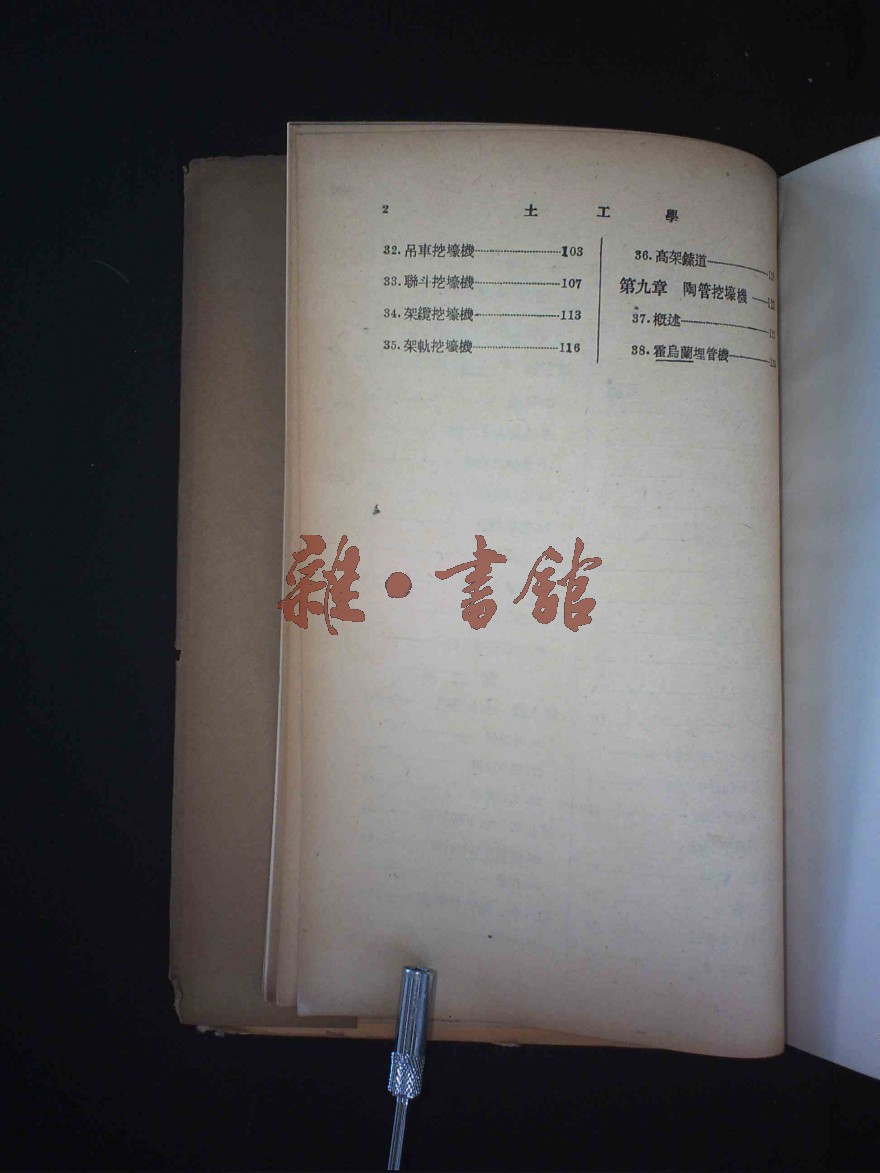 2 土工學
32. 吊車挖壕機 103
33. 聯斗挖壕機 107
34. 架纜挖壕機 113
35. 架軌挖壕機 116
36. 高架鏈道
第九章 陶管挖壕機
37. 概述
38. 霍烏蘭埋管機
雜·書館